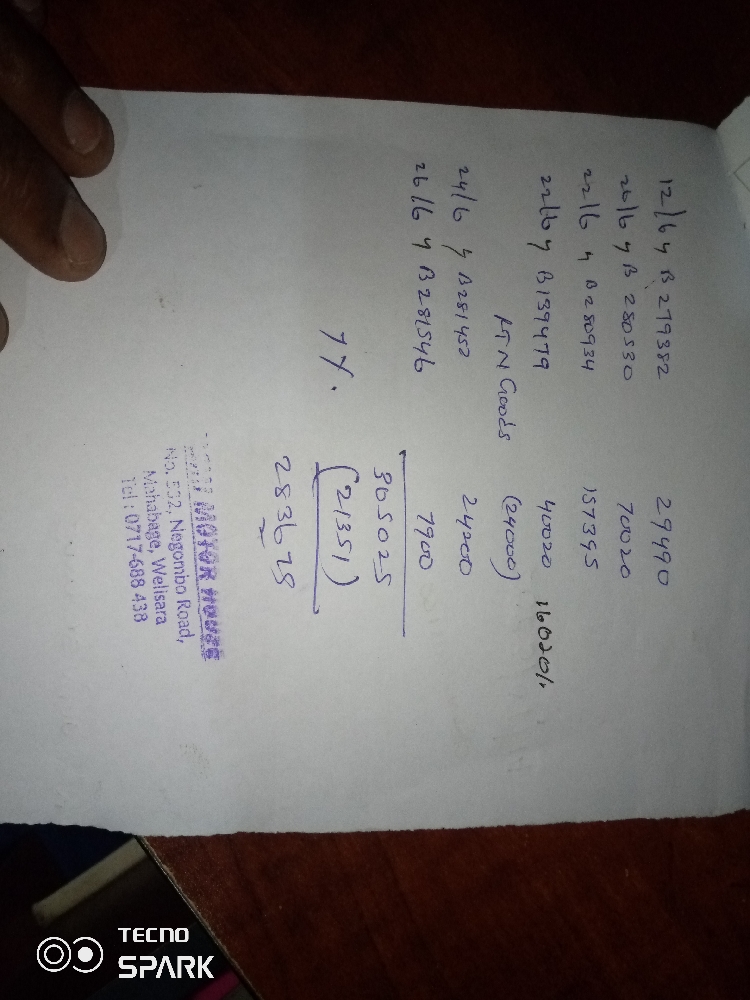 12/6 4 B 279382 29490
20/6 4 B 280530 70020
22/6 4 B 280934 157345
22/6 4 B 139479 40020 16020/.
RTN Goods (24000)
24/6 4 B 281452 24200
26/6 4 B 281546 7900
305025
7%. (21351)
283678
MOTOR HOUSE
No. 532, Negombo Road,
Mahabage, Welisara
Tel : 0717-688 438
TECNO
SPARK